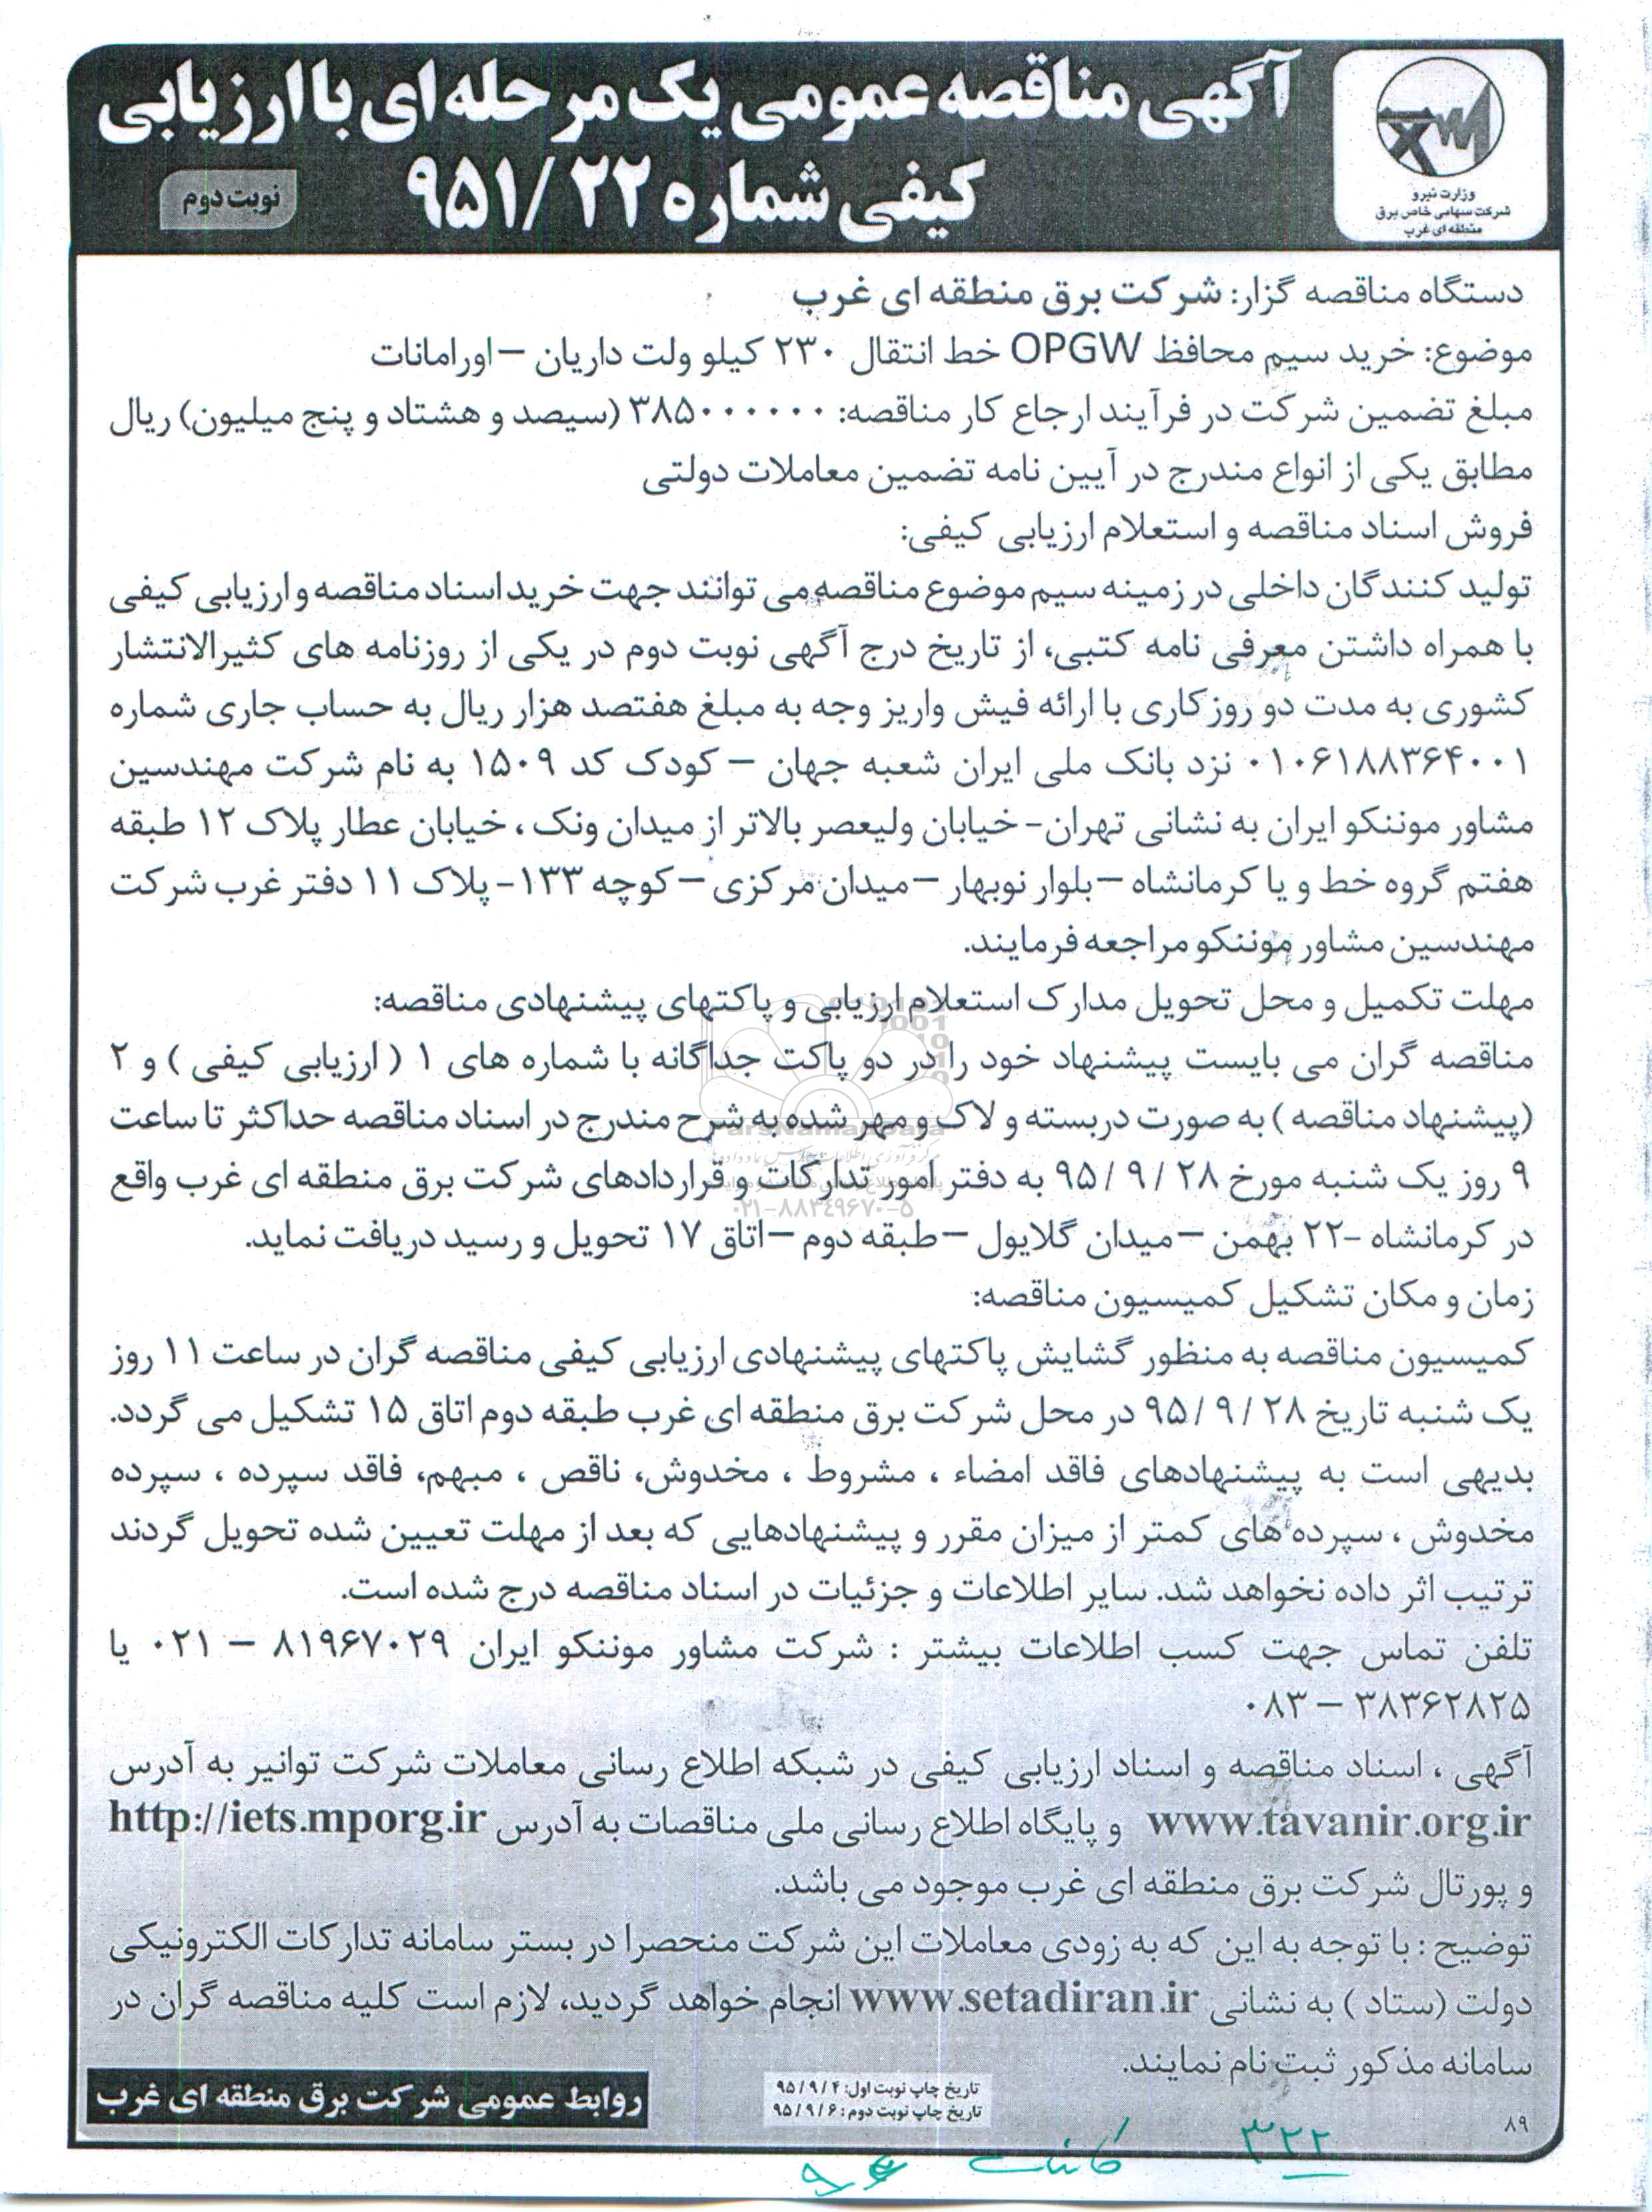 آگهی مناقصه عمومی یک مرحله ای با ارزیابی
کیفی شماره ۹۵۱/۲۲
نوبت دوم
وزارت نیرو
شرکت سهامی خاص برق
منطقه ای غرب
دستگاه مناقصه گزار: شرکت برق منطقه ای غرب
موضوع: خرید سیم محافظ OPGW خط انتقال ۲۳۰ کیلو ولت داریان – اورامانات
مبلغ تضمین شرکت در فرآیند ارجاع کار مناقصه: ۳۸۵۰۰۰۰۰۰ (سیصد و هشتاد و پنج میلیون) ریال
مطابق یکی از انواع مندرج در آیین نامه تضمین معاملات دولتی
فروش اسناد مناقصه و استعلام ارزیابی کیفی:
تولید کنندگان داخلی در زمینه سیم موضوع مناقصه می توانند جهت خرید اسناد مناقصه و ارزیابی کیفی
با همراه داشتن معرفی نامه کتبی، از تاریخ درج آگهی نوبت دوم در یکی از روزنامه های کثیرالانتشار
کشوری به مدت دو روز کاری با ارائه فیش واریز وجه به مبلغ هفتصد هزار ریال به حساب جاری شماره
۰۱۰۶۱۸۸۳۶۴۰۰۱ نزد بانک ملی ایران شعبه جهان – کودک کد ۱۵۰۹ به نام شرکت مهندسین
مشاور موننکو ایران به نشانی تهران- خیابان ولیعصر بالاتر از میدان ونک ، خیابان عطار پلاک ۱۲ طبقه
هفتم گروه خط و یا کرمانشاه – بلوار نوبهار – میدان مرکزی – کوچه ۱۳۳- پلاک ۱۱ دفتر غرب شرکت
مهندسین مشاور موننکو مراجعه فرمایند.
مهلت تکمیل و محل تحویل مدارک استعلام ارزیابی و پاکتهای پیشنهادی مناقصه:
مناقصه گران می بایست پیشنهاد خود را در دو پاکت جداگانه با شماره های ۱ ( ارزیابی کیفی ) و ۲
(پیشنهاد مناقصه ) به صورت دربسته و لاک و مهر شده به شرح مندرج در اسناد مناقصه حداکثر تا ساعت
۹ روز یک شنبه مورخ ۹۵/۹/۲۸ به دفتر امور تدارکات و قراردادهای شرکت برق منطقه ای غرب واقع
در کرمانشاه -۲۲ بهمن – میدان گلایول – طبقه دوم – اتاق ۱۷ تحویل و رسید دریافت نماید.
زمان و مکان تشکیل کمیسیون مناقصه:
کمیسیون مناقصه به منظور گشایش پاکتهای پیشنهادی ارزیابی کیفی مناقصه گران در ساعت ۱۱ روز
یک شنبه تاریخ ۹۵/۹/۲۸ در محل شرکت برق منطقه ای غرب طبقه دوم اتاق ۱۵ تشکیل می گردد.
بدیهی است به پیشنهادهای فاقد امضاء ، مشروط ، مخدوش، ناقص ، مبهم، فاقد سپرده ، سپرده
مخدوش ، سپرده های کمتر از میزان مقرر و پیشنهادهایی که بعد از مهلت تعیین شده تحویل گردند
ترتیب اثر داده نخواهد شد. سایر اطلاعات و جزئیات در اسناد مناقصه درج شده است.
تلفن تماس جهت کسب اطلاعات بیشتر : شرکت مشاور موننکو ایران ۸۱۹۶۷۰۲۹ – ۰۲۱ یا
۳۸۳۶۲۸۲۵ – ۰۸۳
آگهی ، اسناد مناقصه و اسناد ارزیابی کیفی در شبکه اطلاع رسانی معاملات شرکت توانیر به آدرس
www.tavanir.org.ir و پایگاه اطلاع رسانی ملی مناقصات به آدرس http://iets.mporg.ir
و پورتال شرکت برق منطقه ای غرب موجود می باشد.
توضیح : با توجه به این که به زودی معاملات این شرکت منحصرا در بستر سامانه تدارکات الکترونیکی
دولت (ستاد ) به نشانی www.setadiran.ir انجام خواهد گردید، لازم است کلیه مناقصه گران در
سامانه مذکور ثبت نام نمایند.
تاریخ چاپ نوبت اول: ۹۵/۹/۴
تاریخ چاپ نوبت دوم: ۹۵/۹/۶
روابط عمومی شرکت برق منطقه ای غرب
۸۹
۳۲۲
ParsNamadData
۰۲۱-۸۸۳۴۹۶۷۰-۵